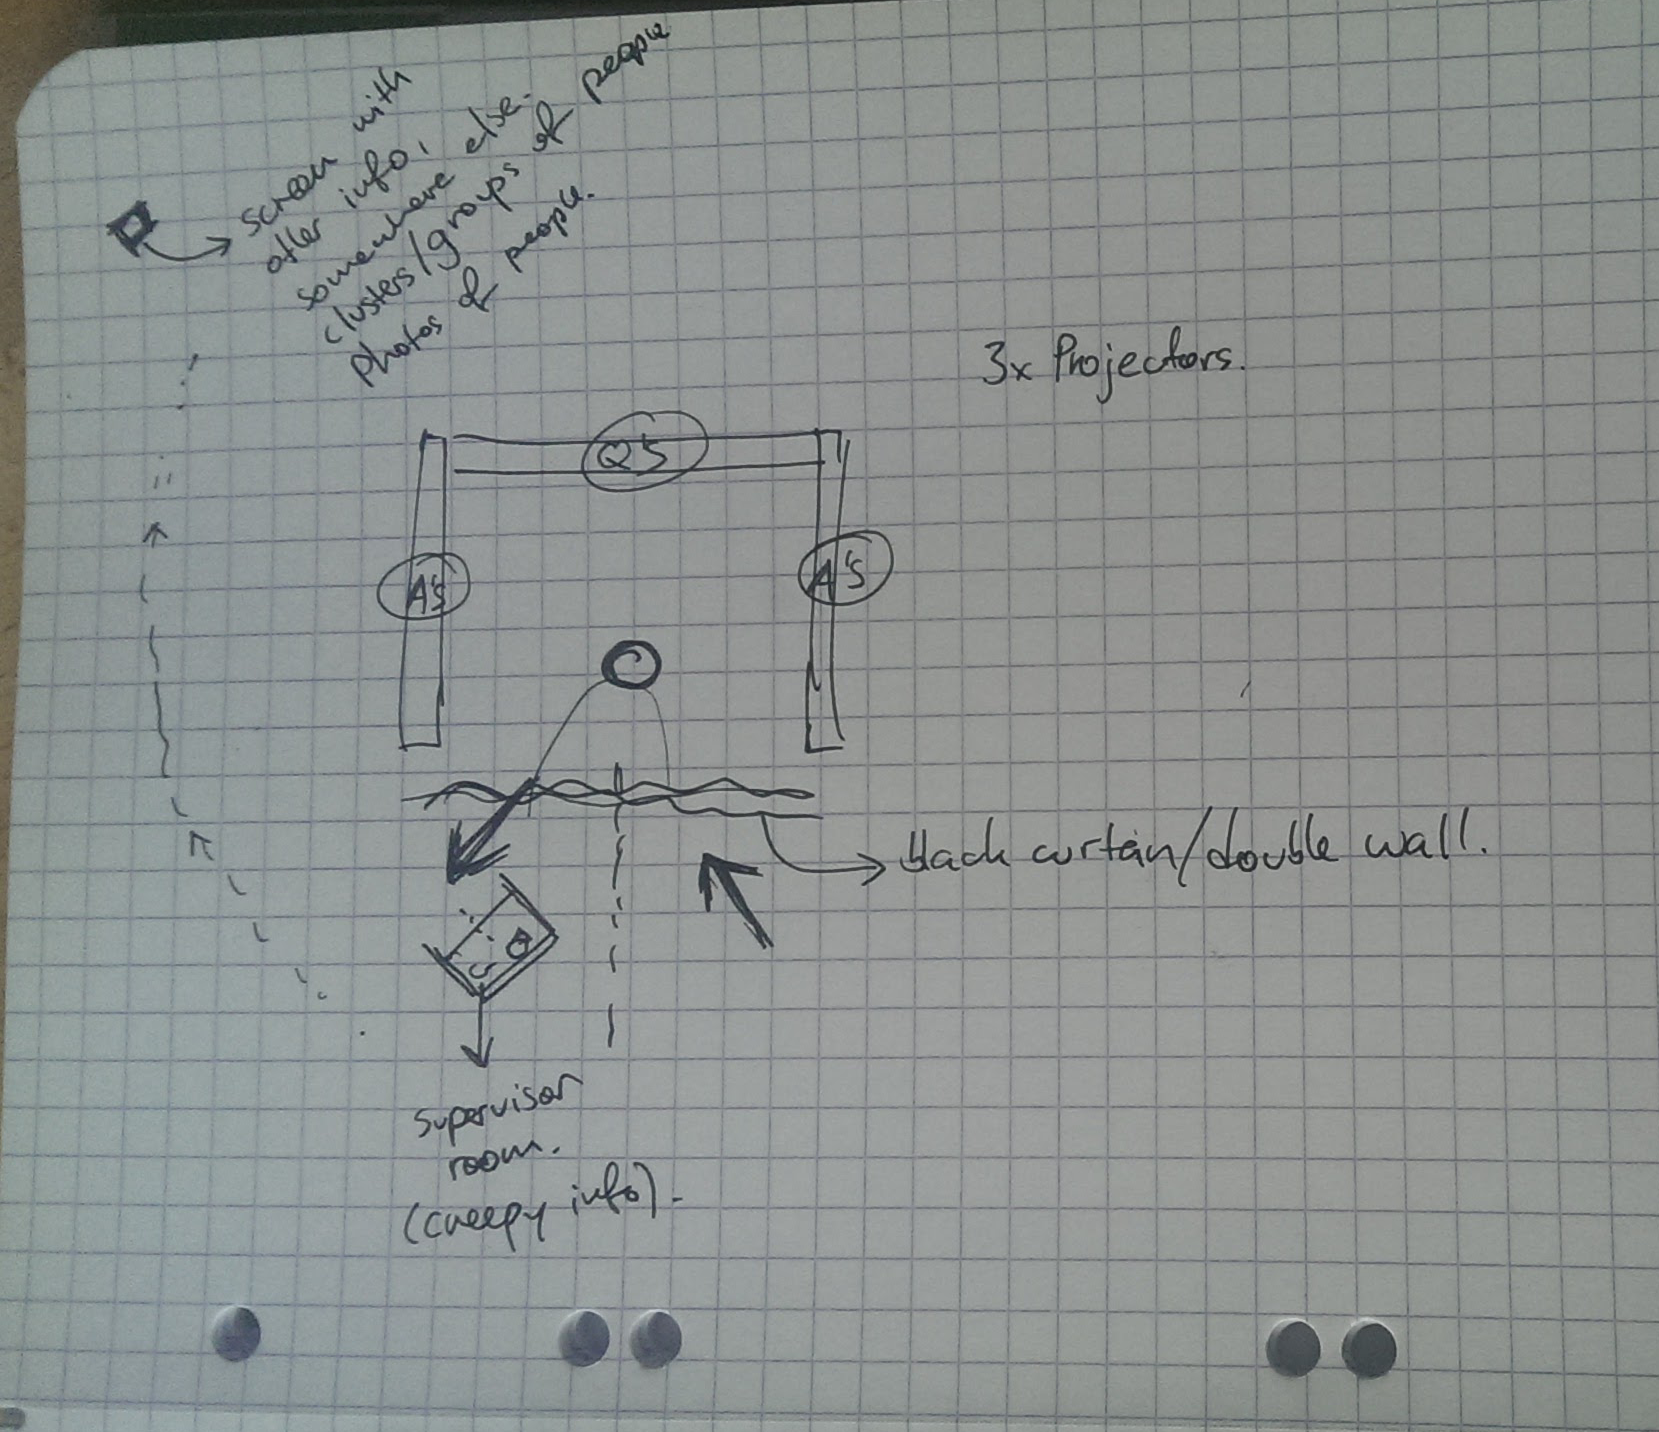 screen with
other info,
somewhere else.
clusters/groups of people
photos of people.
3x Projectors.
QS
A'S
A'S
black curtain/double wall.
supervisor
room.
(creepy info).